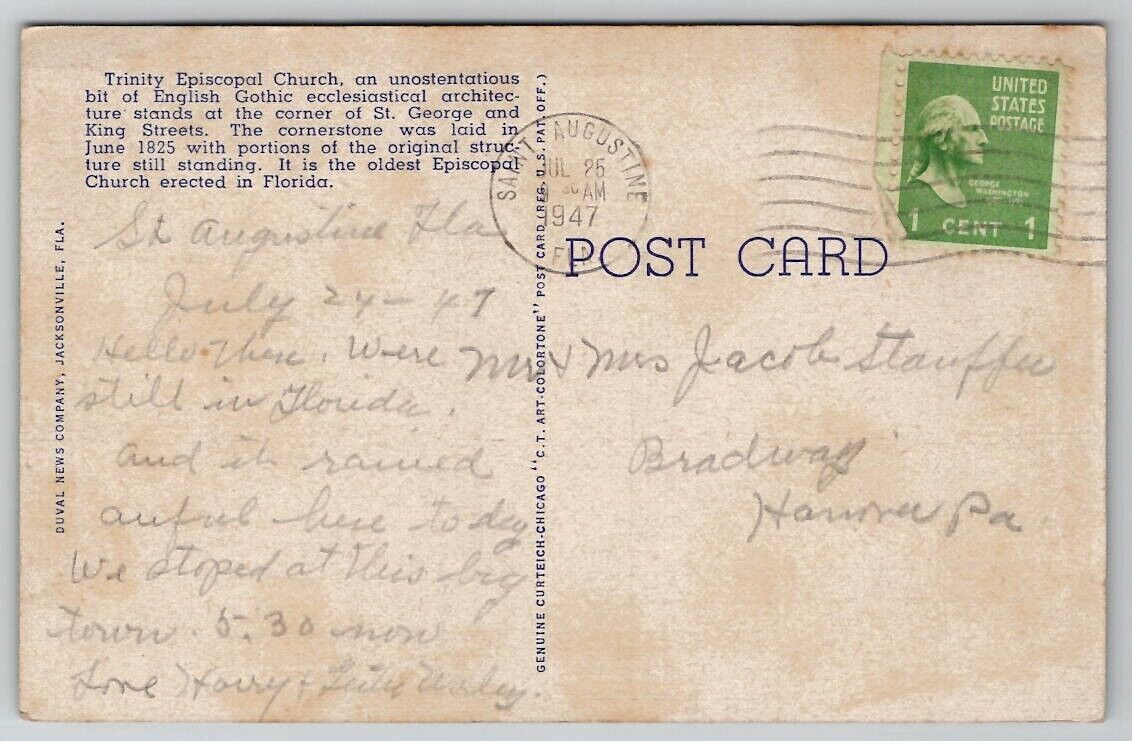 Trinity Episcopal Church, an unostentatious
bit of English Gothic ecclesiastical architec-
ture stands at the corner of St. George and
King Streets. The cornerstone was laid in
June 1825 with portions of the original struc-
ture still standing. It is the oldest Episcopal
Church erected in Florida.
DUVAL NEWS COMPANY, JACKSONVILLE, FLA.
St Augustine Fla
July 24 - 47
Hello There. Were
still in Florida.
and it rained
awful here today
We stoped at this big
town. 5.30 now
Love Harry &
GENUINE CURTEICH-CHICAGO "C.T. ART-COLORTONE" POST CARD (REG. U.S. PAT. OFF.)
SAINT AUGUSTINE
JUL 25
AM
1947
FLA
POST CARD
UNITED
STATES
POSTAGE
GEORGE
WASHINGTON
1 CENT 1
Mr & Mrs Jacob Stauffer
Bradway
Hanover Pa